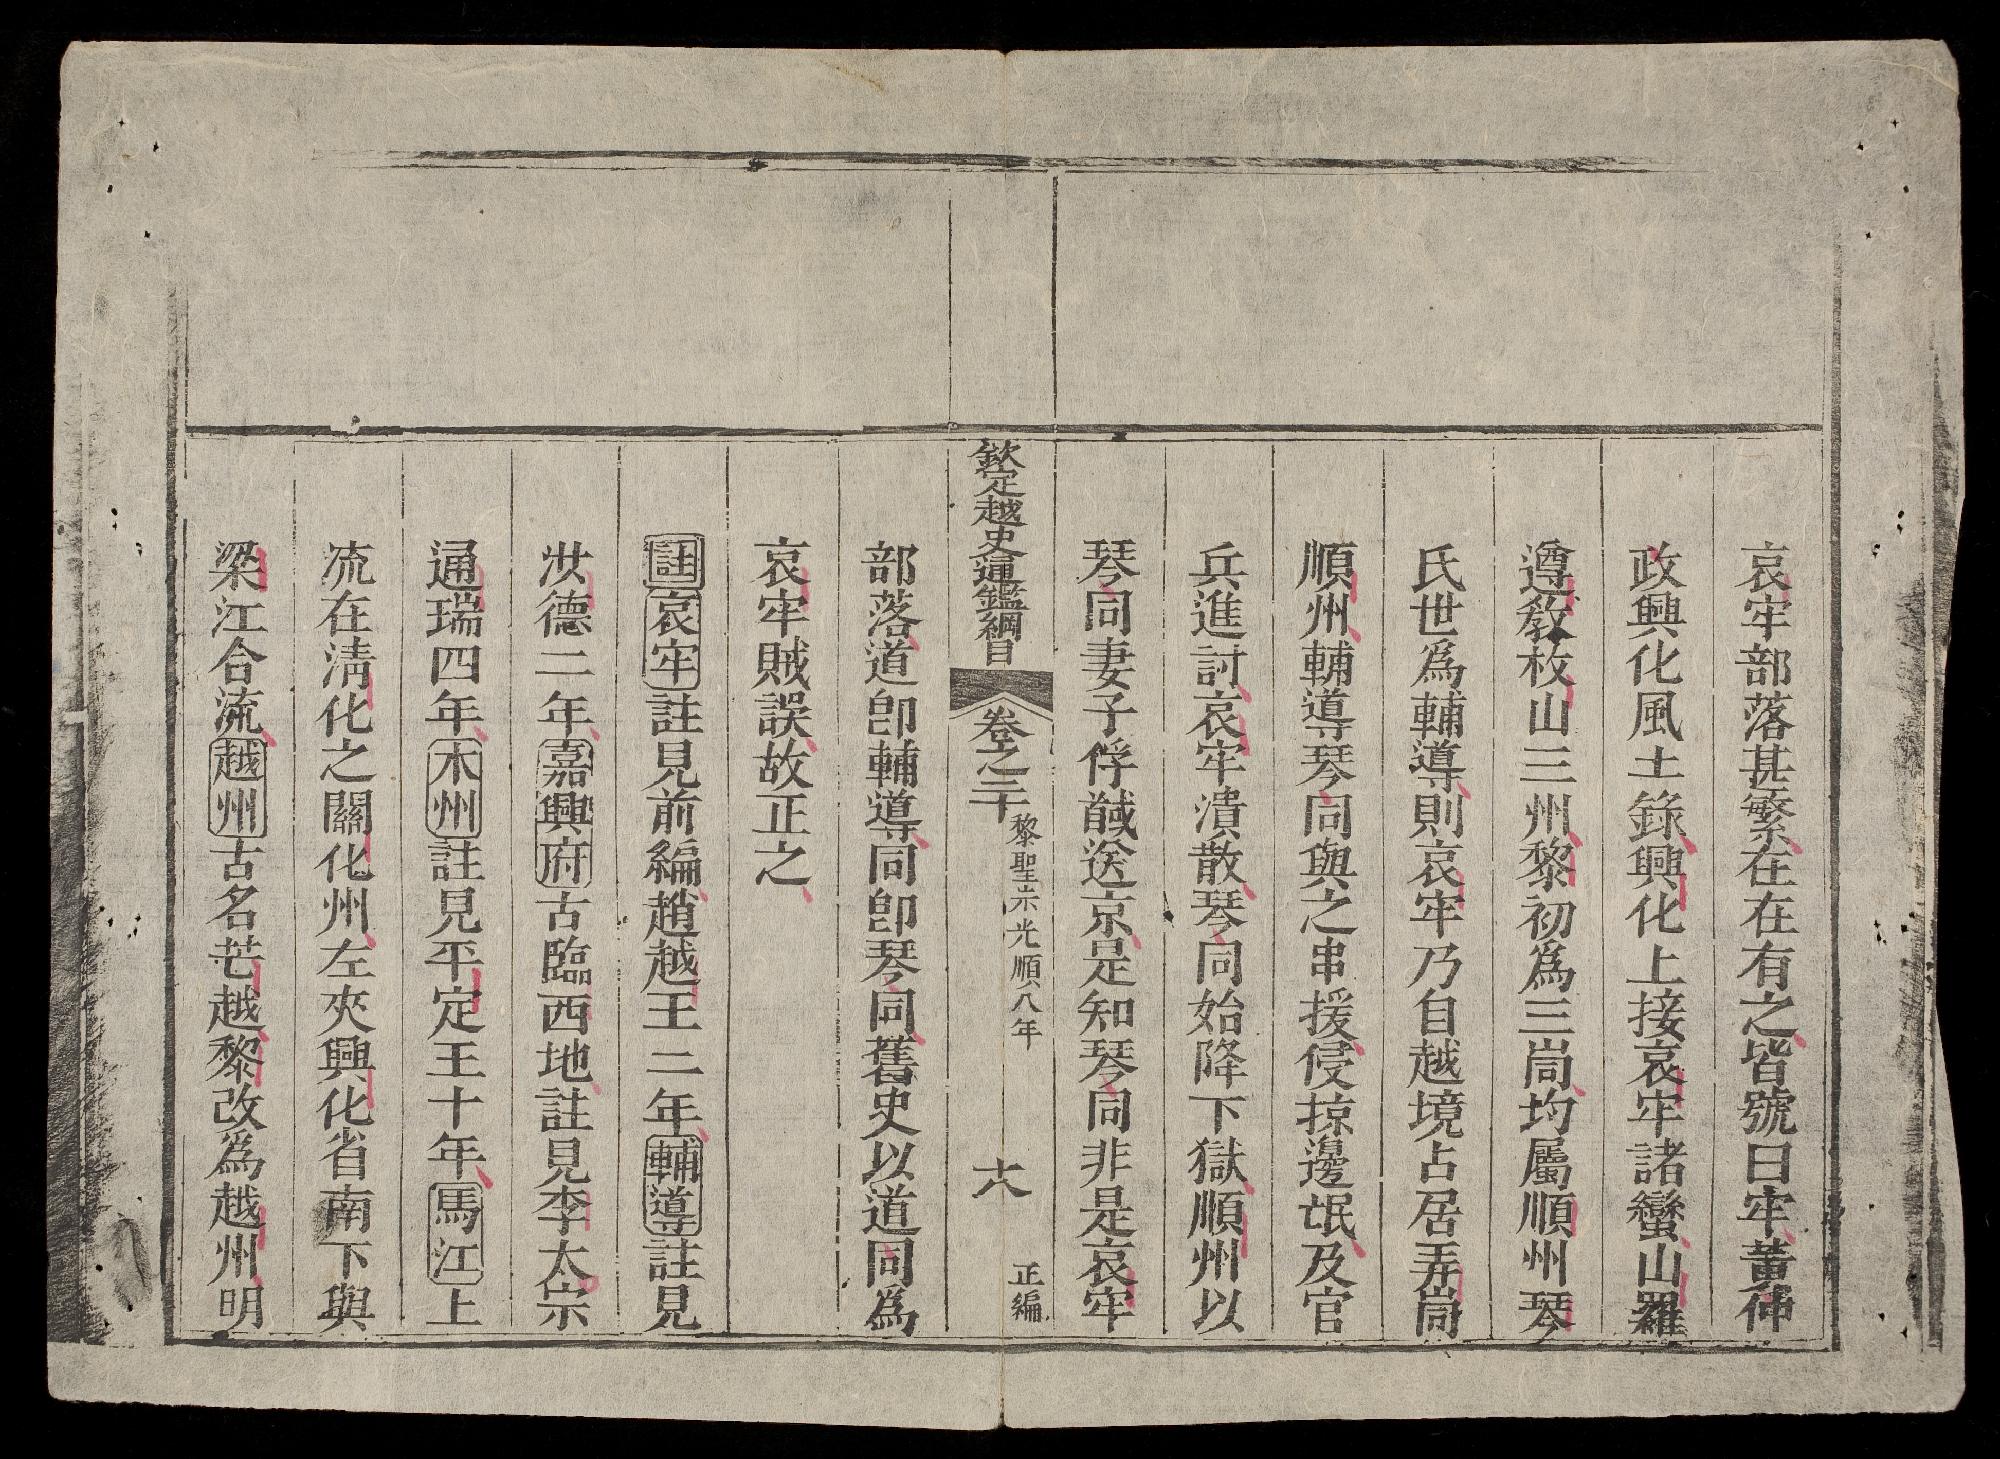 哀牢部落甚繁在在有之皆號曰牢黄仲
政興化風土錄興化上接哀牢諸蠻山羅
遵教枚山三州黎初爲三峝均屬順州琴
氏世爲輔導則哀牢乃自越境占居弄峝
順州輔導琴同與之串援侵掠邊氓及官
兵進討哀牢潰散琴同始降下獄順州以
琴同妻子俘馘送京是知琴同非是哀牢
欽定越史通鑑綱目 卷之二十 黎聖宗光順八年 十八 正編
部落道卽輔導同卽琴同舊史以道同爲
哀牢賊誤故正之
註哀牢註見前編趙越王二年輔導註見
洪德二年嘉興府古臨西地註見李太宗
通瑞四年木州註見平定王十年馬江上
流在清化之關化州左夾興化省南下與
梁江合流越州古名芒越黎改爲越州明